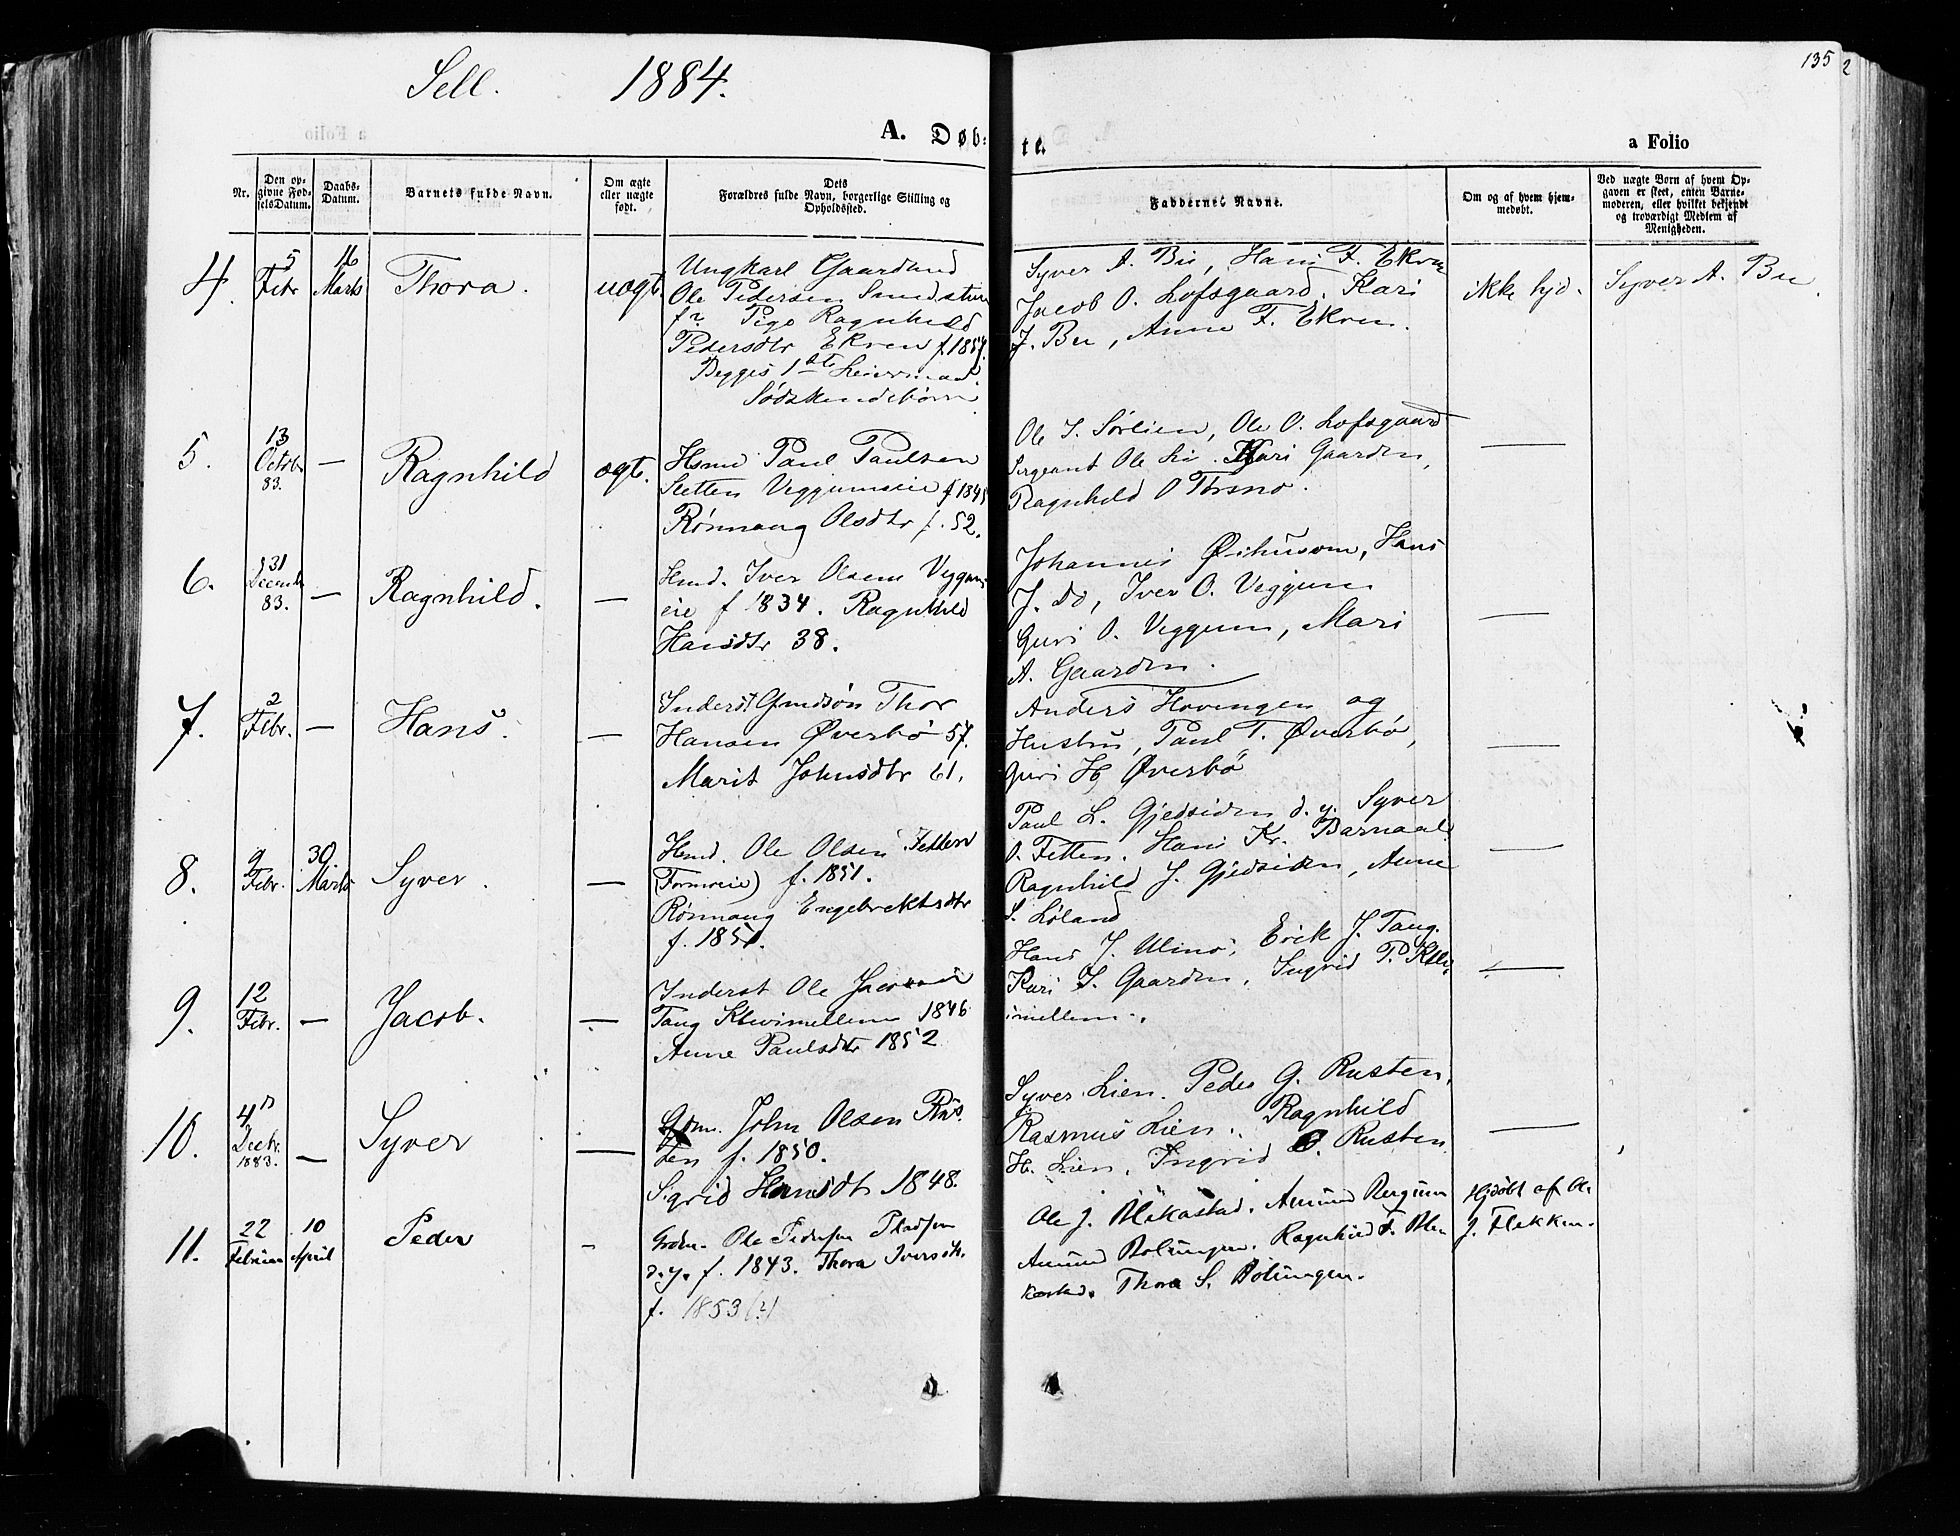 135 2
Sell. 1884.
A. Døb= te.
a Folio
Nr.
Den op-
givne Fød-
selsDatum.
Daabs-
Datum.
Barnets fulde Navn.
Om ægte
eller uægte
født.
Dets
Forældres fulde Navn, borgerlige Stilling og
Opholdssted.
Faddernes Navne.
Om og af hvem hjem-
medøbt.
Ved uægte Børn af hvem Op-
gaven er skeet, enten Barne-
moderen, eller hvilket bekjendt
og troværdigt Medlem af
Menigheden.
4.
5
Febr
16
Marts
Thora.
uægt.
Ungkarl Gaardmd
Ole Pedersen
f? Pige Ragnhild
Pedersdtr Ekren f 1857.
Begges 1ste Leiermaal.
Sødskendebørn
Syver A. Bu, Hans F. Ekren
Jacob O. Lofsgaard, Kari
J. Bu, Anne F. Ekren.
ikke hjd.
Syver A. Bu.
5.
13
Octbr
83.
—
Ragnhild
ægte.
Hsmd Paul Paulsen
Sletten Veggumseie f 1845
Rønnaug Olsdtr f. 52.
Ole S. Sørlien, Ole O. Lofsgaard
Sergeant Ole Li. Kari Gaarden,
Ragnhild O
—
6.
31
Decemb
83.
—
Ragnhild.
—
Hsmd. Iver Olsen Veggum-
eie f 1834. Ragnhild
Hansdtr 38.
Johannes Øihusom, Hans
J. do, Iver O. Veggum
Guri O. Veggum, Mari
A. Gaarden.
—
7.
2
Febr.
—
Hans.
—
Inderst Thor
Hansen Øverbø 57.
Marit Johnsdtr 61.
Anders Hovingen og
Hustru, Paul T. Øverbø,
Guri H Øverbø
—
8.
9
Febr.
30
Marts
Syver.
—
Hsmd. Ole Olsen Fetten
f. 1851.
Rønnaug Engebrektsdtr
f. 1851.
Paul L. Gjedsiden d. y. Syver
O. Fetten. Hans Kr. Barnaal
Ragnhild J. Gjedsiden, Anne
S. Løland
—
9.
12
Febr.
—
Jacob.
—
Inderst Ole Jacobsen
Tang 1846
Anne Paulsdtr 1852
Hans J. Ulmo, Erik J. Tang.
Kari I. Gaarden, Ingrid P.
—
10.
4
Decbr.
1883.
—
Syver
—
John Olsen Rus-
ten f. 1850.
Sigrid Hansdtr 1848.
Syver Lien. Peder G. Rusten,
Rasmus Lien. Ragnhild
H. Lien, Ingrid O. Rusten
—
11.
22
Februar
10
April
Peder
–
Ole Pedersen
d.y. f. 1843. Thora Iversdt.
f. 1853 (?)
Ole J. Blekastad. Amund Bergum
Amund Bolungen. Ragnhild T. Ble-
kastad. Thora S. Bolungen.
Hjdøbt af O.
J. Flekken.